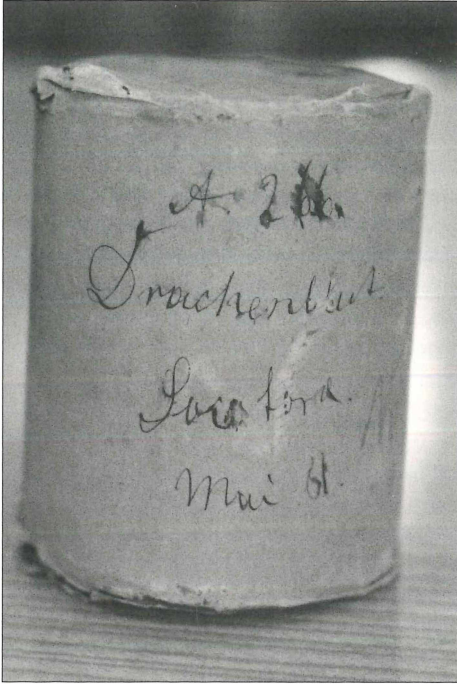 A. 2
Drachenblut
Socotora.
Mai 81.